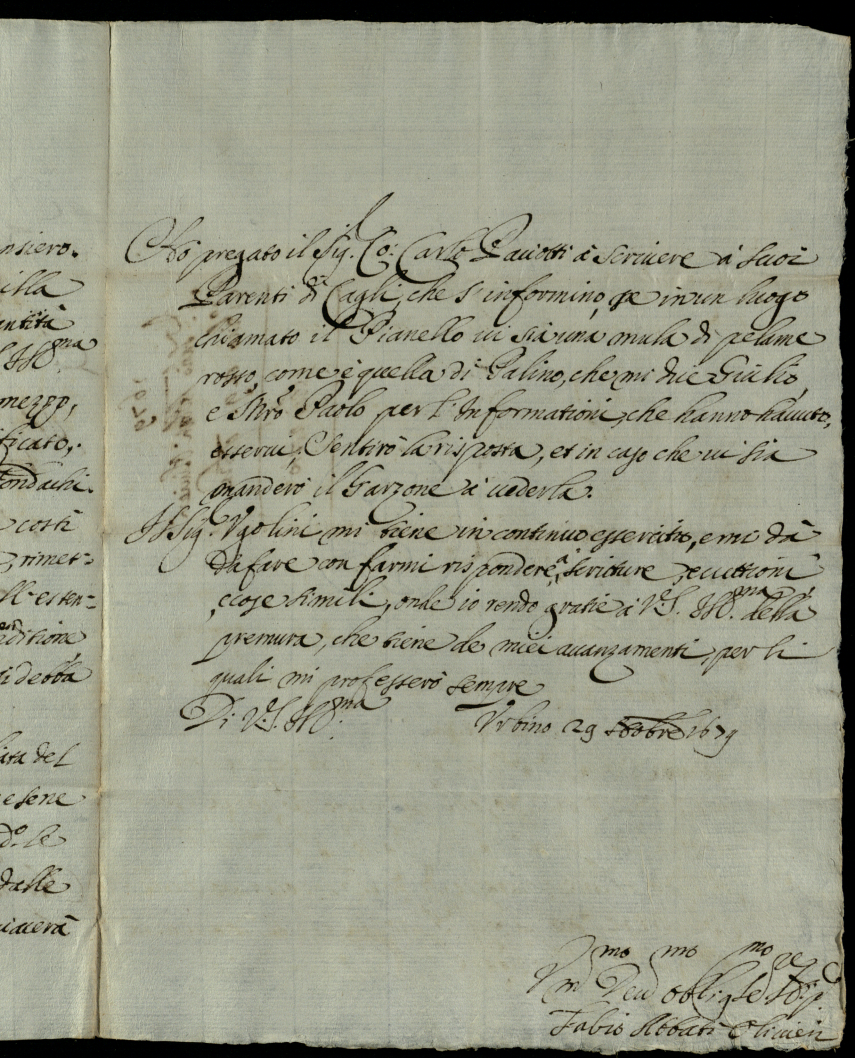 nsiero.
illa
entità
Ill.ma
mezzo,
ficato,
fondachi.
costì
rimet=
esten=
ditione
si debba
lata del
e sene
d.o le
dalle
iacerà
Hò pregato il Sig. Co: Carlo Paciotti à scrivere à suoi
Parenti di Cagli, che s'informino, se in un luogo
chiamato il Pianello vi sia una mula di pelame
rosso, come è quella di Palino, che mi dice Giulio,
e Mro Paolo per l'Informationi, che hanno havuto,
esservi, Sentirò la risposta, et in caso che vi sia
manderò il Garzone à vederla.
Il Sig. Ugolini mi tiene in continuo essercitio, e mi dà
da fare con farmi rispondere à scritture, eccettioni
e cose simili, onde io rendo gratie à V.S. Ill.ma della
premura, che tiene de miei avanzamenti, per li
quali mi professerò sempre
Di V.S. Ill.ma Urbino 29 ottobre 1679
mo mo mo re
Um Dev oblig Se
Fabio Abbati Olivieri